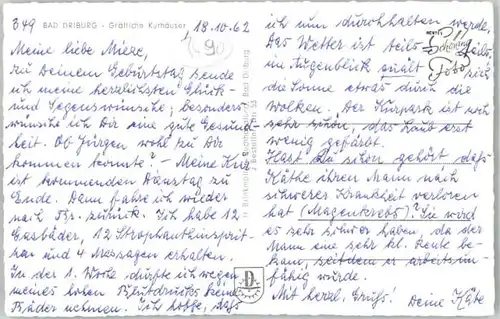 349 BAD DRIBURG - Gräfliche Kurhäuser 18.10.62
90
Meine liebe Mieze,
zu Deinem Geburtstag sende
ich meine herzlichsten Glück-
und Segenswünsche; besonders
wünsche ich Dir eine gute Gesund-
heit. Ob Jürgen wohl zu Dir
kommen konnte? - Meine Kur
ist kommenden Dienstag zu
Ende. Dann fahre ich wieder
nach zurück. Ich habe 12
Gasbäder, 12 Strophantheinsprit-
zen und 4 Massagen erhalten.
In der 1. Woche durfte ich wegen
meines hohen Blutdrucks keine
Bäder nehmen. Ich hoffe, daß
ich nun durchhalten werde.
Das Wetter ist teils
im Augenblick quält sich
die Sonne etwas durch die
Wolken. Der Kurpark ist noch
sehr schön, das Laub erst
wenig gefärbt.
Hast Du schon gehört, daß
Käthe ihren Mann nach
schwerer Krankheit verloren
hat (Magenkrebs)? Sie wird
es sehr schwer haben, da der
Mann eine sehr kl. Rente be-
kam, seitdem er arbeitsun-
fähig wurde.
Mit herzl. Gruß! Deine Käte
Schöning
Foto